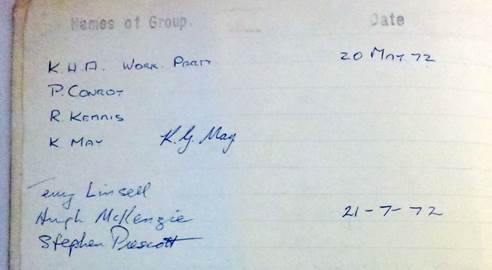 Names of Group. Date
K.H.A. WORK PARTY 20 MAY 72
P. CONROY
R. KENNIS
K MAY K. G. May
Terry Linsell
Hugh McKenzie 21-7-72
Stephen Prescott